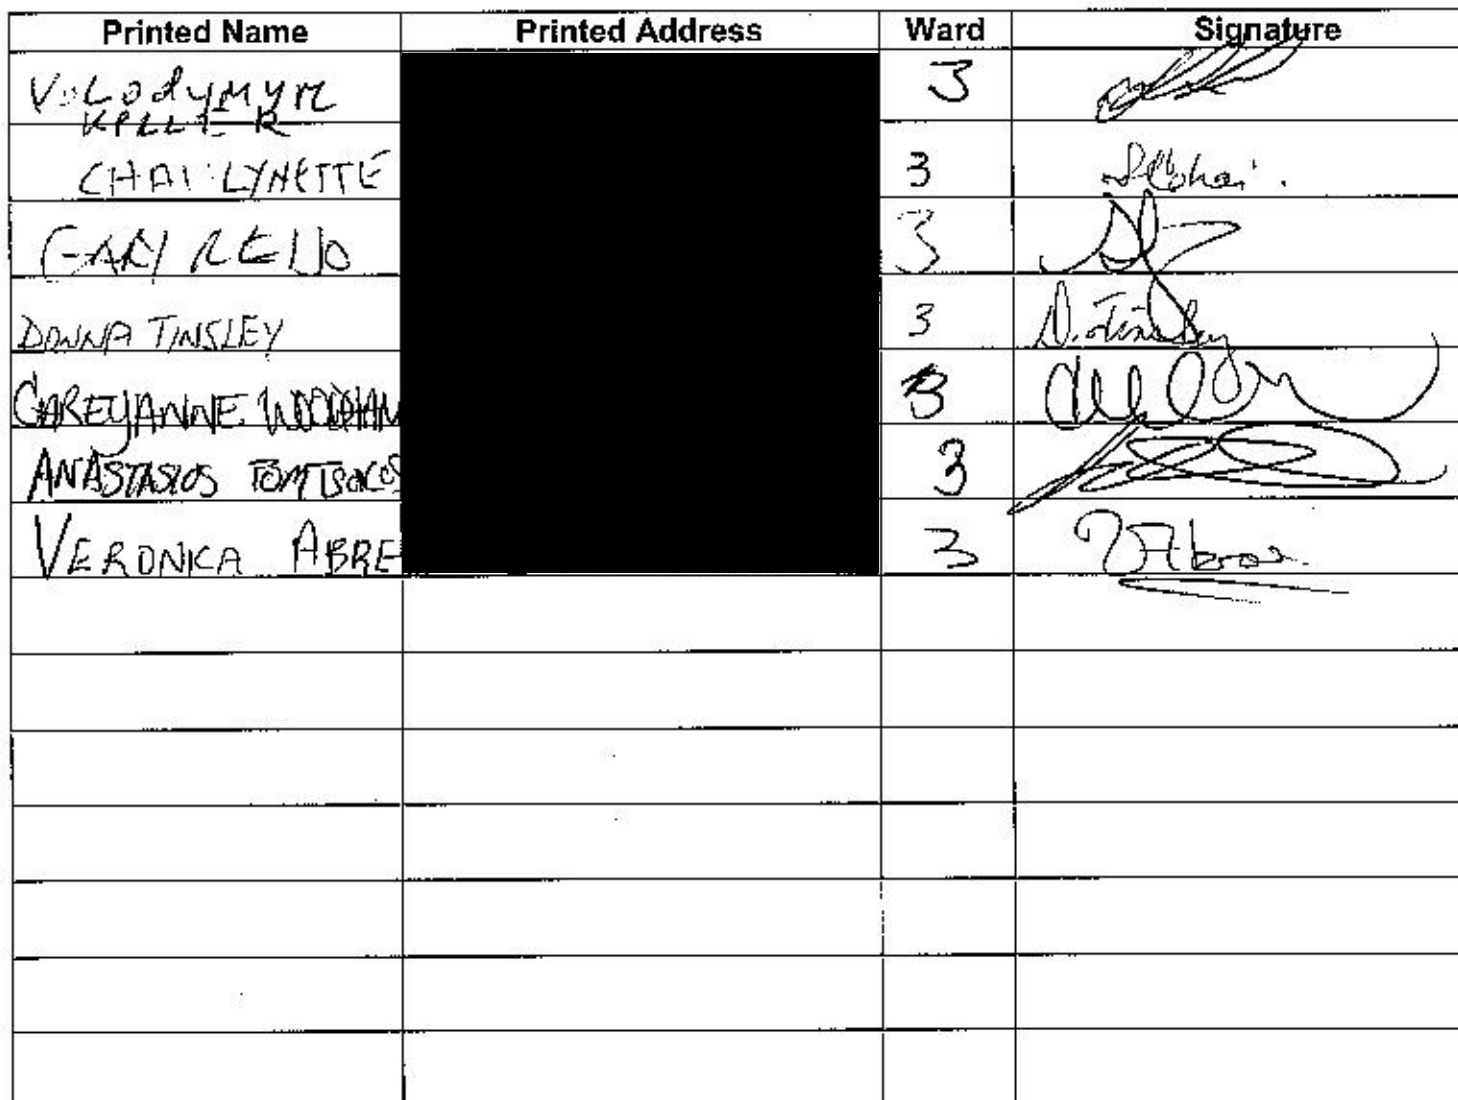 Printed Name Printed Address Ward Signature
Volodymyr 3
KELLER
CHAI LYNETTE 3 Chai.
GARY REIJO 3
DONNA TINSLEY 3 D. Tinsley
CAREYANNE WOODHAM 3
ANASTASIOS TOMTSOKOS 3
VERONICA ABRE 3 V Abreu